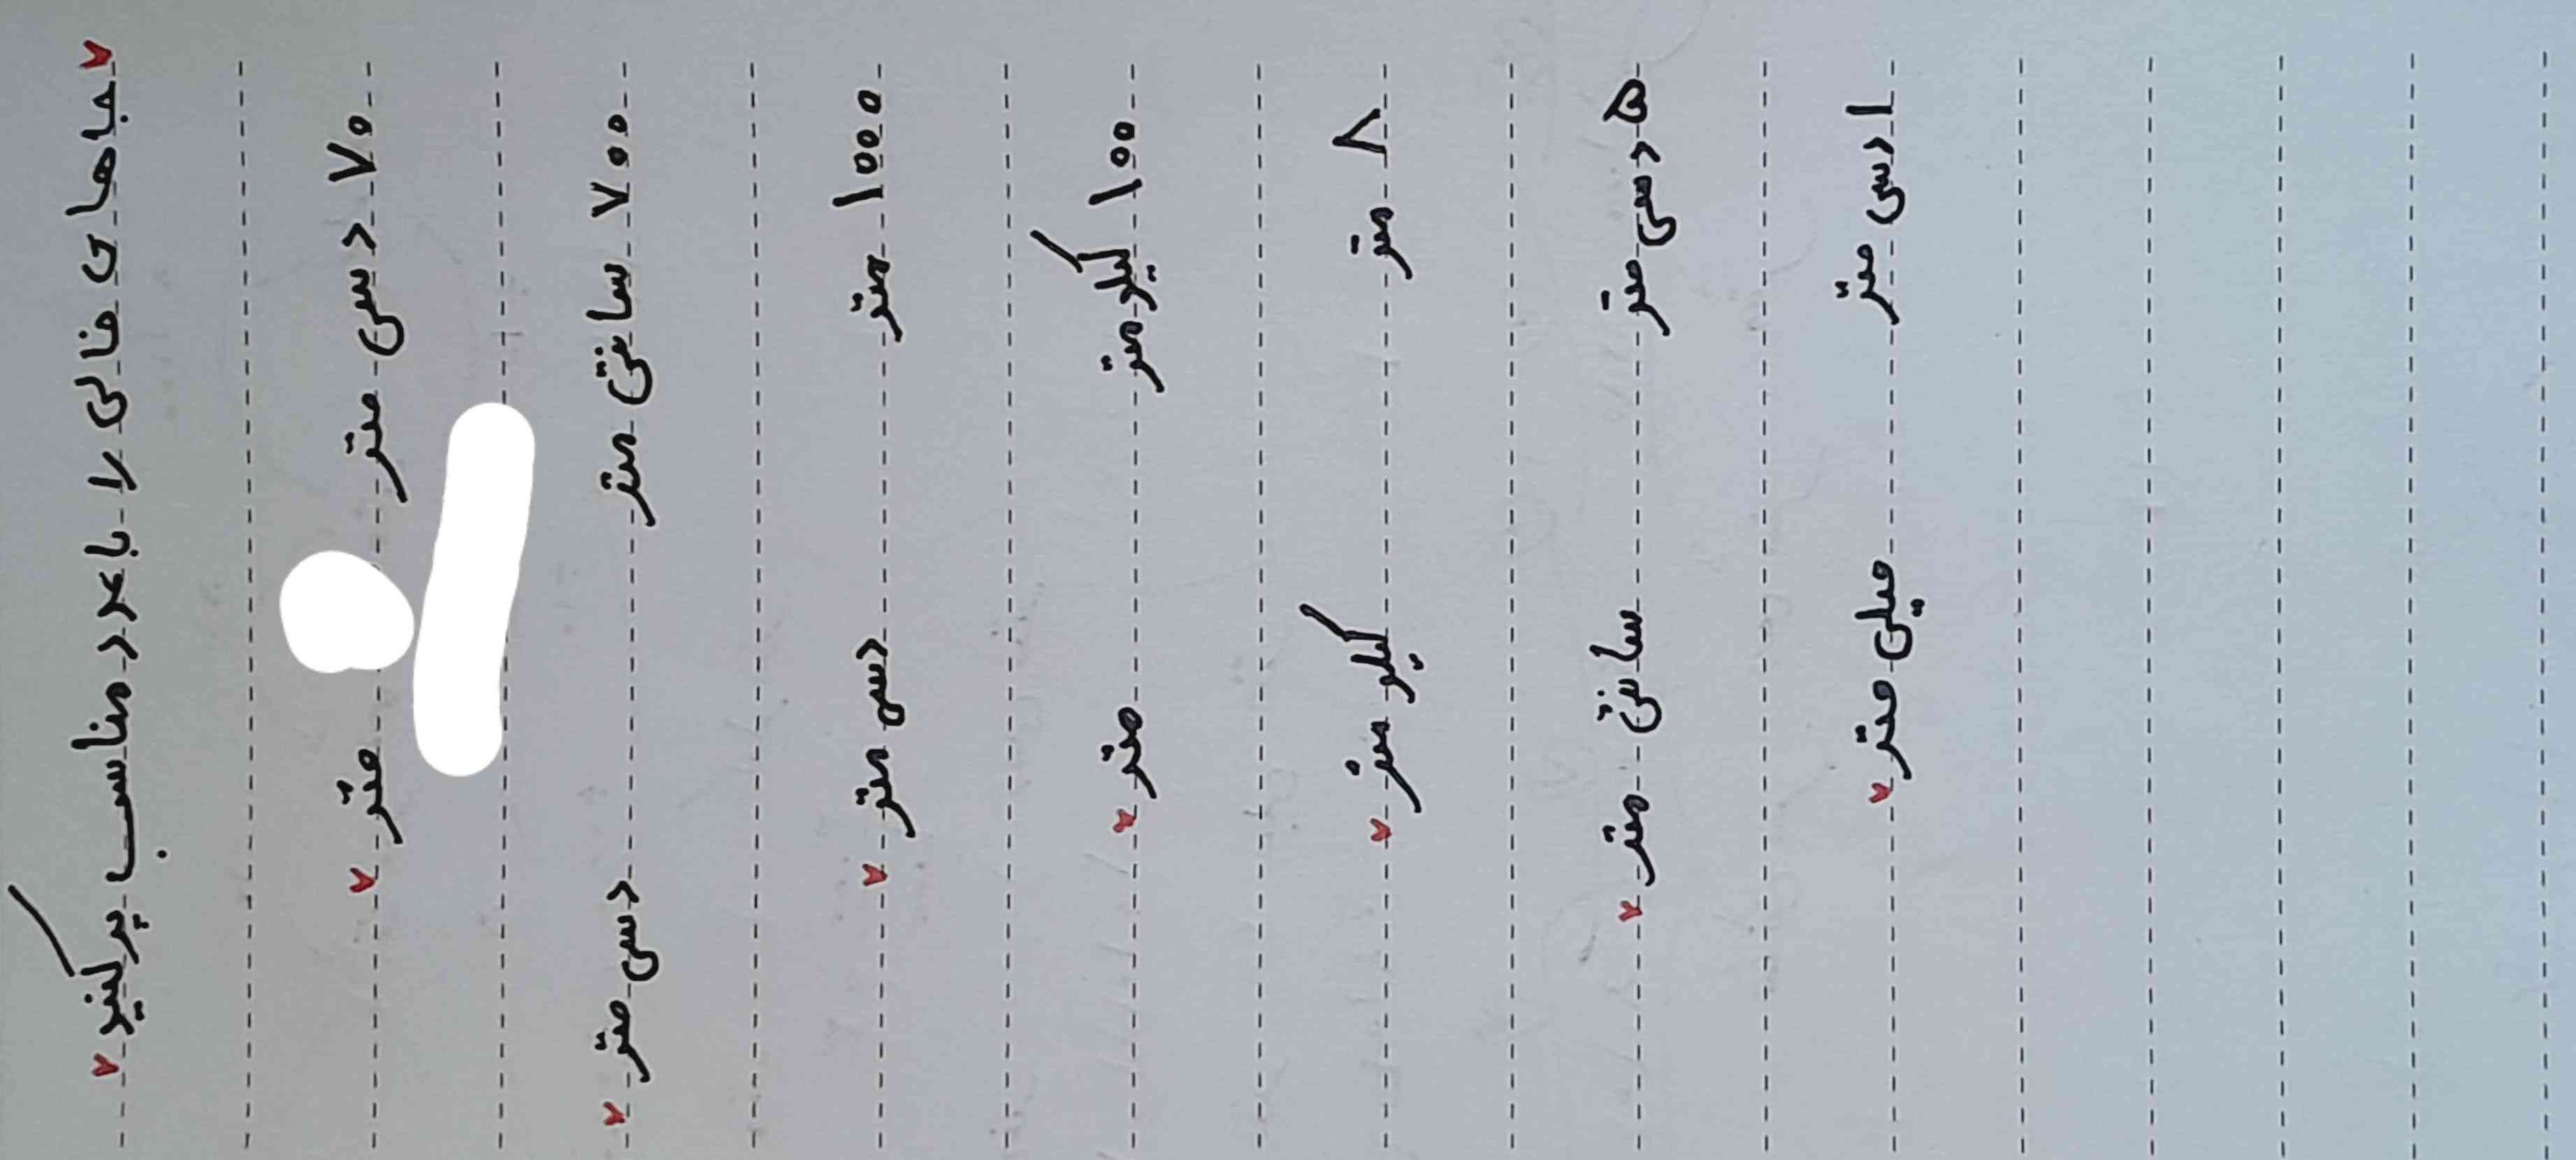 جاهای خالی را با عدد مناسب پر کنید
۷۰ دسی متر متر
۷۰۰ سانتی متر دسی متر
۱۰۰۰ متر دسی متر
۱۰۰ کیلومتر متر
۸ متر کیلو متر
۵ دسی متر سانتی متر
۱ دسی متر میلی متر